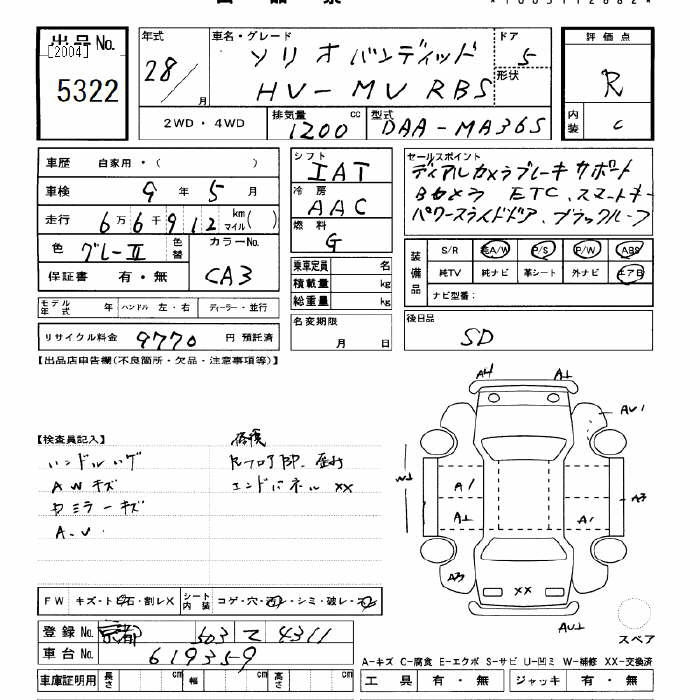 出品No.
[2004]
5322
年式
28/
月
車名・グレード
ソリオ バンディッド
HV-MV RBS
ドア
5
形状
評価点
R
内装
C
2WD・4WD
排気量
1200
cc
型式
DAA-MA36S
車歴
自家用・(　　　)
車検
9年5月
走行
6万6千912
km
マイル( )
色
グレーII
色替
カラーNo.
CA3
保証書
有・無
モデル年式
年
ハンドル
左・右
ディーラー・並行
リサイクル料金
9770
円 預託済
シフト
IAT
冷房
AAC
燃料
G
乗車定員
名
積載量
kg
総重量
kg
名変期限
月 日
セールスポイント
ディアルカメラブレーキサポート
Bカメラ ETC、スマートキー
パワースライドドア、ブラックルーフ
装備品
S/R
純A/W
P/S
P/W
ABS
純TV
純ナビ
革シート
外ナビ
エアB
ナビ型番:
後日品
SD
【出品店申告欄(不良箇所・欠品・注意事項等)】
【検査員記入】
ハンドルハゲ
AWキズ
Dミラーキズ
A.U
修復
エンドパネル XX
A4
A1
AU1
A1
A1
A1
A3
A3
XX
AU1
スペア
FW
キズ・トビ石・割レX
シート内装
コゲ・穴・
・シミ・破レ・
登録No.
京都
503
て
4311
車台No.
619359
A-キズ C-腐食 E-エクボ S-サビ U-凹ミ W-補修 XX-交換済
車庫証明用
長さ
cm
幅
cm
高さ
cm
工具
有・無
ジャッキ
有・無